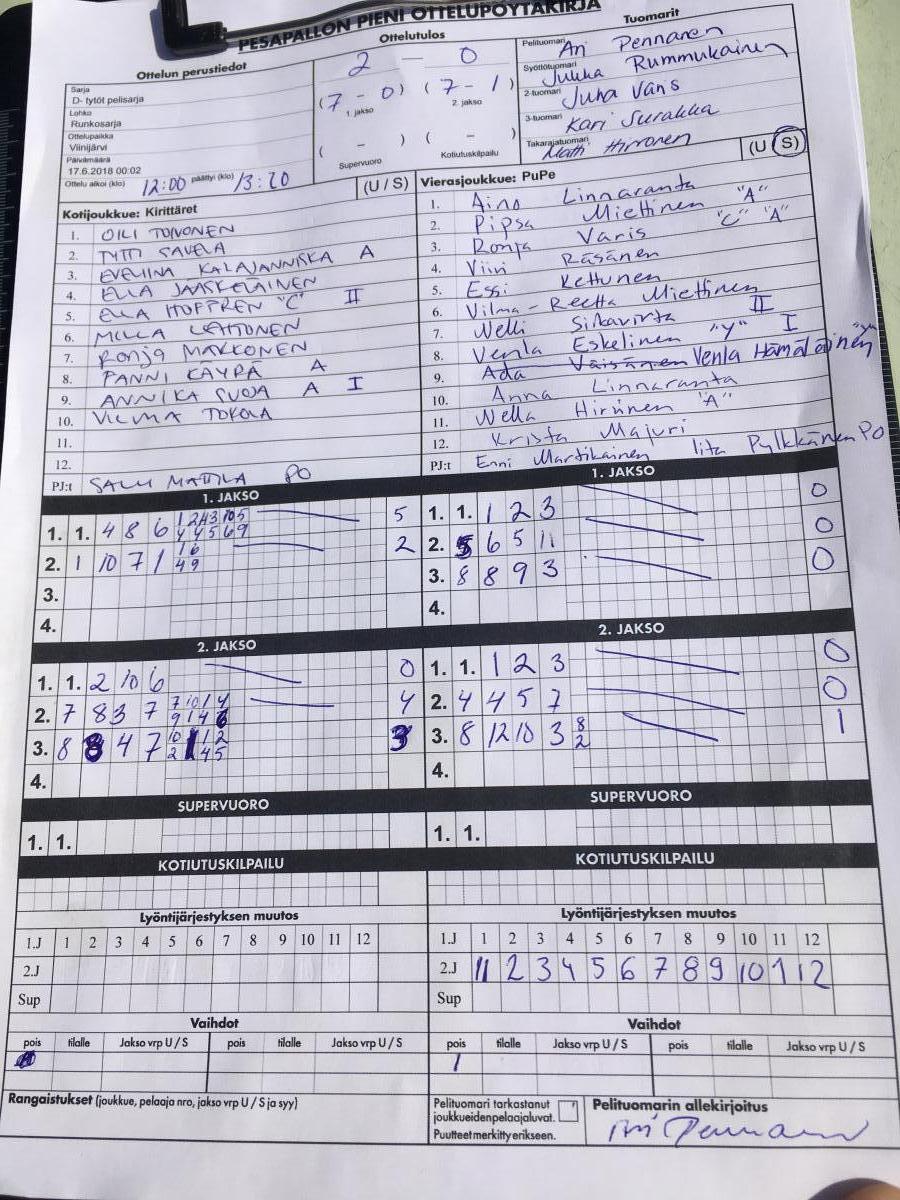 PESÄPALLON PIENI OTTELUPÖYTÄKIRJA
Ottelun perustiedot
Sarja
D- tytöt pelisarja
Lohko
Runkosarja
Ottelupaikka
Viinijärvi
Päivämäärä
17.6.2018 00:02
Ottelu alkoi (klo) 12:00 päättyi (klo) 13:20
Ottelutulos
2 — 0
(7 - 0) (7 - 1)
1. jakso 2. jakso
( - ) ( - )
Supervuoro Kotiutuskilpailu
Tuomarit
Pelituomari Ari Pennanen
Syöttötuomari Jukka Rummukainen
2-tuomari Juha Varis
3-tuomari Kari Surakka
Takarajatuomari Matti Hirvonen
Kotijoukkue: Kirittäret (U / S)
1. OILI TOIVONEN
2. TYTTI SAVELA
3. EVELIINA KALAJANNISKA A
4. ELLA JÄÄSKELÄINEN
5. ELLA HOFFREN "C" II
6. MILLA LEHTONEN
7. RONJA MAKKONEN
8. FANNI KÄYPÄ A
9. ANNIKA SUOJA A I
10. VILMA TOKOLA
11.
12.
PJ:t SALLI MATTILA PO
Vierasjoukkue: PuPe (U / S)
1. Aino Linnaranta
2. Pipsa Miettinen "A"
3. Ronja Varis "C" "A"
4. Viivi Räsänen
5. Essi Kettunen
6. Vilma-Reetta Miettinen
7. Nelli Siikavirta II
8. Venla Eskelinen "Y" I
9. Ada Väisänen Venla Hämäläinen "Y"
10. Anna Linnaranta
11. Nella Hirvinen "A"
12. Krista Majuri
PJ:t Enni Martikainen Iita Pylkkänen PO
1. JAKSO
1. 1. 4 8 6 1 2 4 3 10 5 5
4 4 5 6 9
2. 1 10 7 1 1 6 2
4 9
3.
4.
1. JAKSO
1. 1. 1 2 3 0
2. 5 6 5 11 0
3. 8 8 9 3 0
4.
2. JAKSO
1. 1. 2 10 6 0
2. 7 8 3 7 7 10 1 4 4
9 1 4 6
3. 8 8 4 7 10 1 1 2 3
2 1 4 5
4.
2. JAKSO
1. 1. 1 2 3 0
2. 4 4 5 7 0
3. 8 12 10 3 8 1
2
4.
SUPERVUORO
1. 1.
SUPERVUORO
1. 1.
KOTIUTUSKILPAILU
KOTIUTUSKILPAILU
Lyöntijärjestyksen muutos
1.J 1 2 3 4 5 6 7 8 9 10 11 12
2.J
Sup
Lyöntijärjestyksen muutos
1.J 1 2 3 4 5 6 7 8 9 10 11 12
2.J 11 2 3 4 5 6 7 8 9 10 1 12
Sup
Vaihdot
pois tilalle Jakso vrp U / S pois tilalle Jakso vrp U / S
Vaihdot
pois tilalle Jakso vrp U / S pois tilalle Jakso vrp U / S
1
Rangaistukset (joukkue, pelaaja nro, jakso vrp U / S ja syy)
Pelituomari tarkastanut
joukkueiden pelaajaluvat.
Puutteet merkitty erikseen.
Pelituomarin allekirjoitus
Ari Pennanen